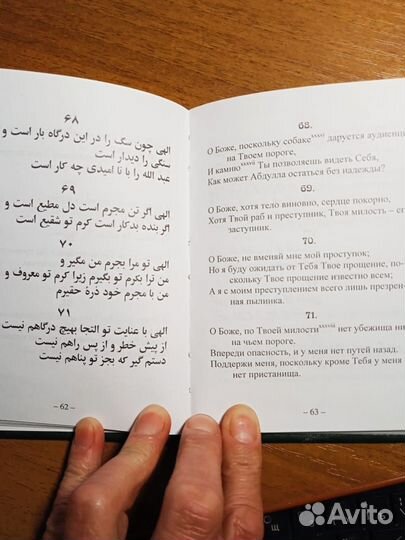 ۶۸
الهی چون سگ را در این درگاه بار است و
سنگی را دیدار است
عبد الله را با نا امیدی چه کار است
۶۹
الهی اگر تن مجرم است دل مطیع است و
اگر بنده بدکار است کرم تو شفیع است
۷۰
الهی تو مرا بجرم من مگیر و
من ترا بکرم تو بگیرم زیرا کرم تو معروف و
من با مجرم خود ذرهٔ حقیرم
۷۱
الهی با عنایت تو التجا بهیچ درگاهم نیست
از پیش خطر و از پس راهم نیست
دستم گیر که بجز تو پناهم نیست
– 62 –
68.
О Боже, поскольку собаке^xxxvi даруется аудиенц
на Твоем пороге,
И камню^xxxvii Ты позволяешь видеть Себя,
Как может Абдулла остаться без надежды?
69.
О Боже, хотя тело виновно, сердце покорно,
Хотя Твой раб и преступник, Твоя милость – ег
заступник.
70.
О Боже, не вменяй мне мой проступок;
Но я буду ожидать от Тебя Твое прощение, по-
скольку Твое прощение известно всем;
А я с моим преступлением всего лишь презрен-
ная пылинка.
71.
О Боже, по Твоей милости^xxxviii нет убежища ни
на чьем пороге.
Впереди опасность, и у меня нет путей назад.
Поддержи меня, поскольку кроме Тебя у меня
нет пристанища.
– 63 –
Avito